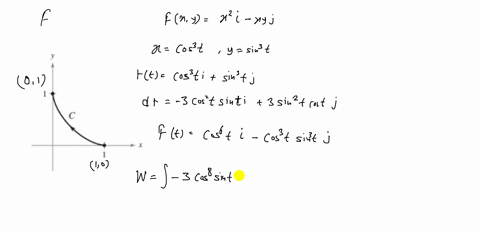 F
F(x, y) = x² i - xy j
x = cos³t , y = sin³t
r(t) = cos³t i + sin³t j
dr = -3 cos²t sint i + 3 sin²t cost j
F(t) = cos⁶t i - cos³t sin³t j
W = ∫ -3 cos⁸ sint
y
(0,1)
1
C
x
1
(1,0)